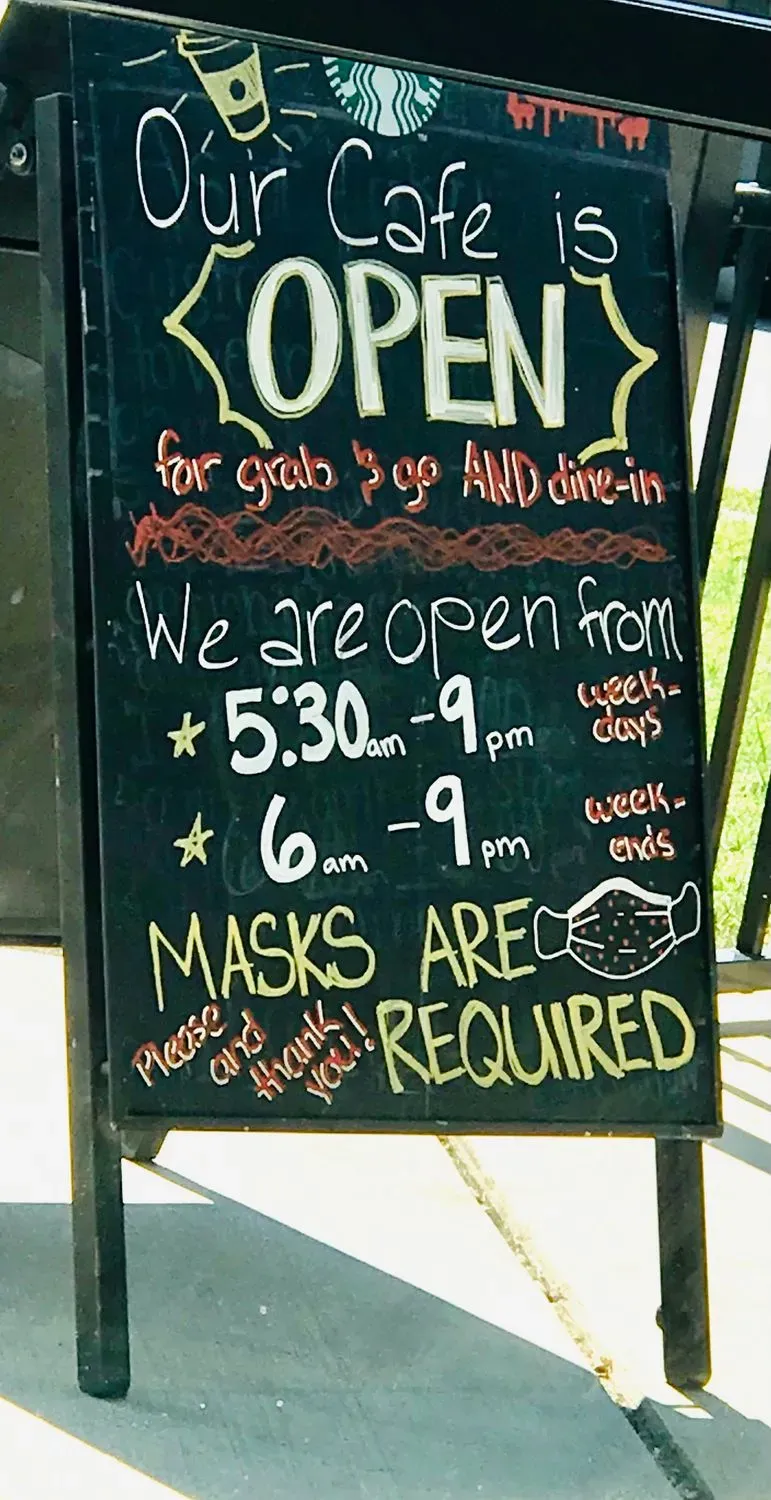 Our Cafe is
OPEN
for grab & go AND dine-in
We are open from
5:30am - 9pm week-
days
6am - 9pm week-
ends
MASKS ARE
REQUIRED
Please
and
thank
you!